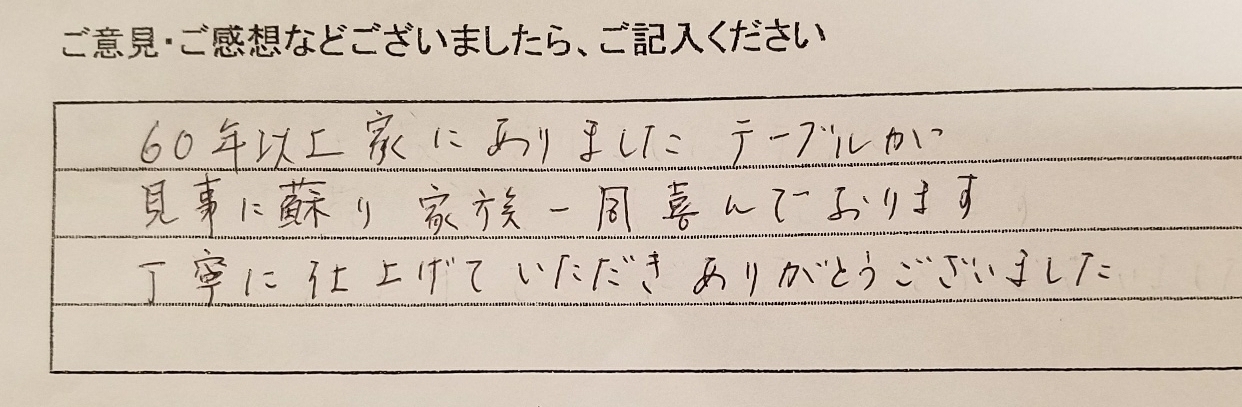 ご意見・ご感想などございましたら、ご記入ください
60年以上家にありました テーブルが
見事に蘇り 家族一同喜んでおります
丁寧に仕上げていただき ありがとうございました